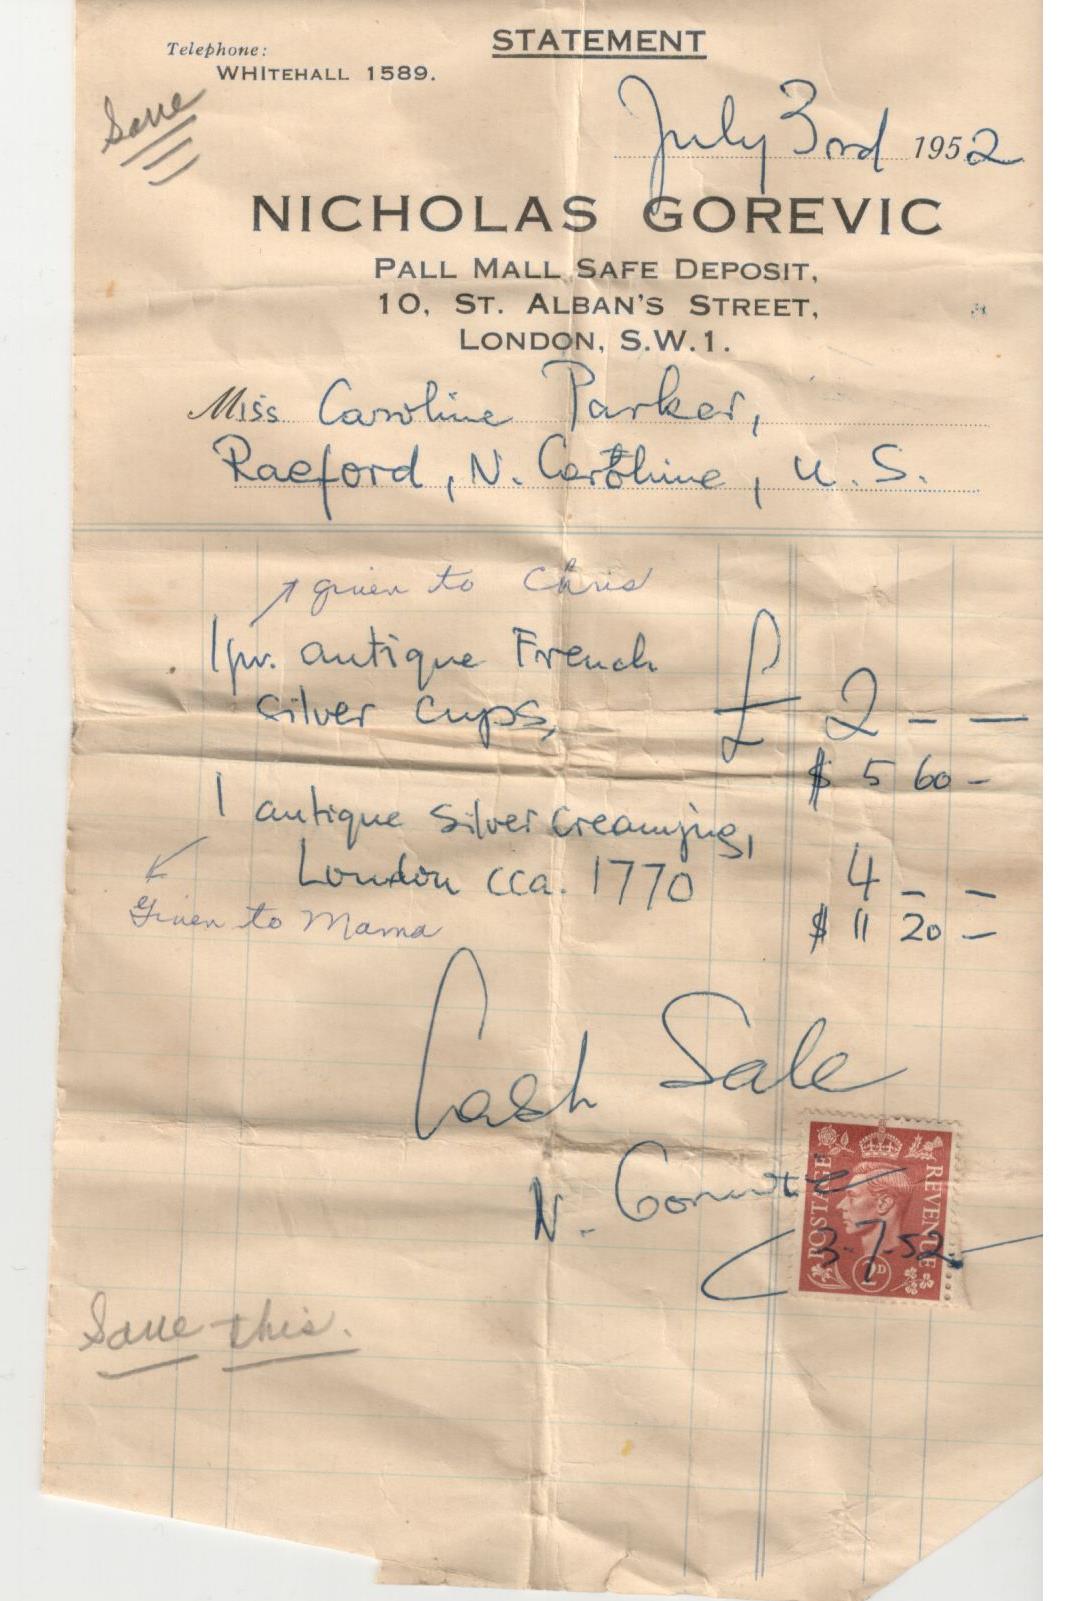 STATEMENT
Telephone:
WHITEHALL 1589.
Save
July 3rd 1952
NICHOLAS GOREVIC
PALL MALL SAFE DEPOSIT,
10, ST. ALBAN'S STREET,
LONDON, S.W.1.
Miss Caroline Parker,
Raeford, N. Carolina, U.S.
given to Chris
1 pr. antique French
silver cups, £ 2 — —
$ 5 60 —
1 antique silver creamjug,
London cca. 1770 4 — —
Given to Mama
$ 11 20 —
Cash Sale
N. Gorevic
POSTAGE REVENUE
1D
3.7.52
Save this.